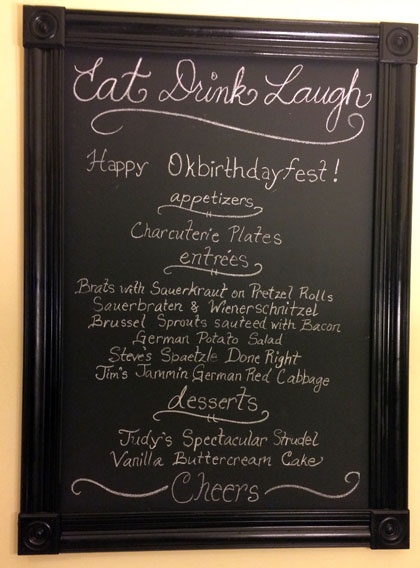 Eat Drink Laugh
Happy Okbirthdayfest!
appetizers
Charcuterie Plates
entrées
Brats with Sauerkraut on Pretzel Rolls
Sauerbraten & Wienerschnitzel
Brussel Sprouts sauteed with Bacon
German Potato Salad
Steve's Spaetzle Done Right
Jim's Jammin German Red Cabbage
desserts
Judy's Spectacular Strudel
Vanilla Buttercream Cake
Cheers